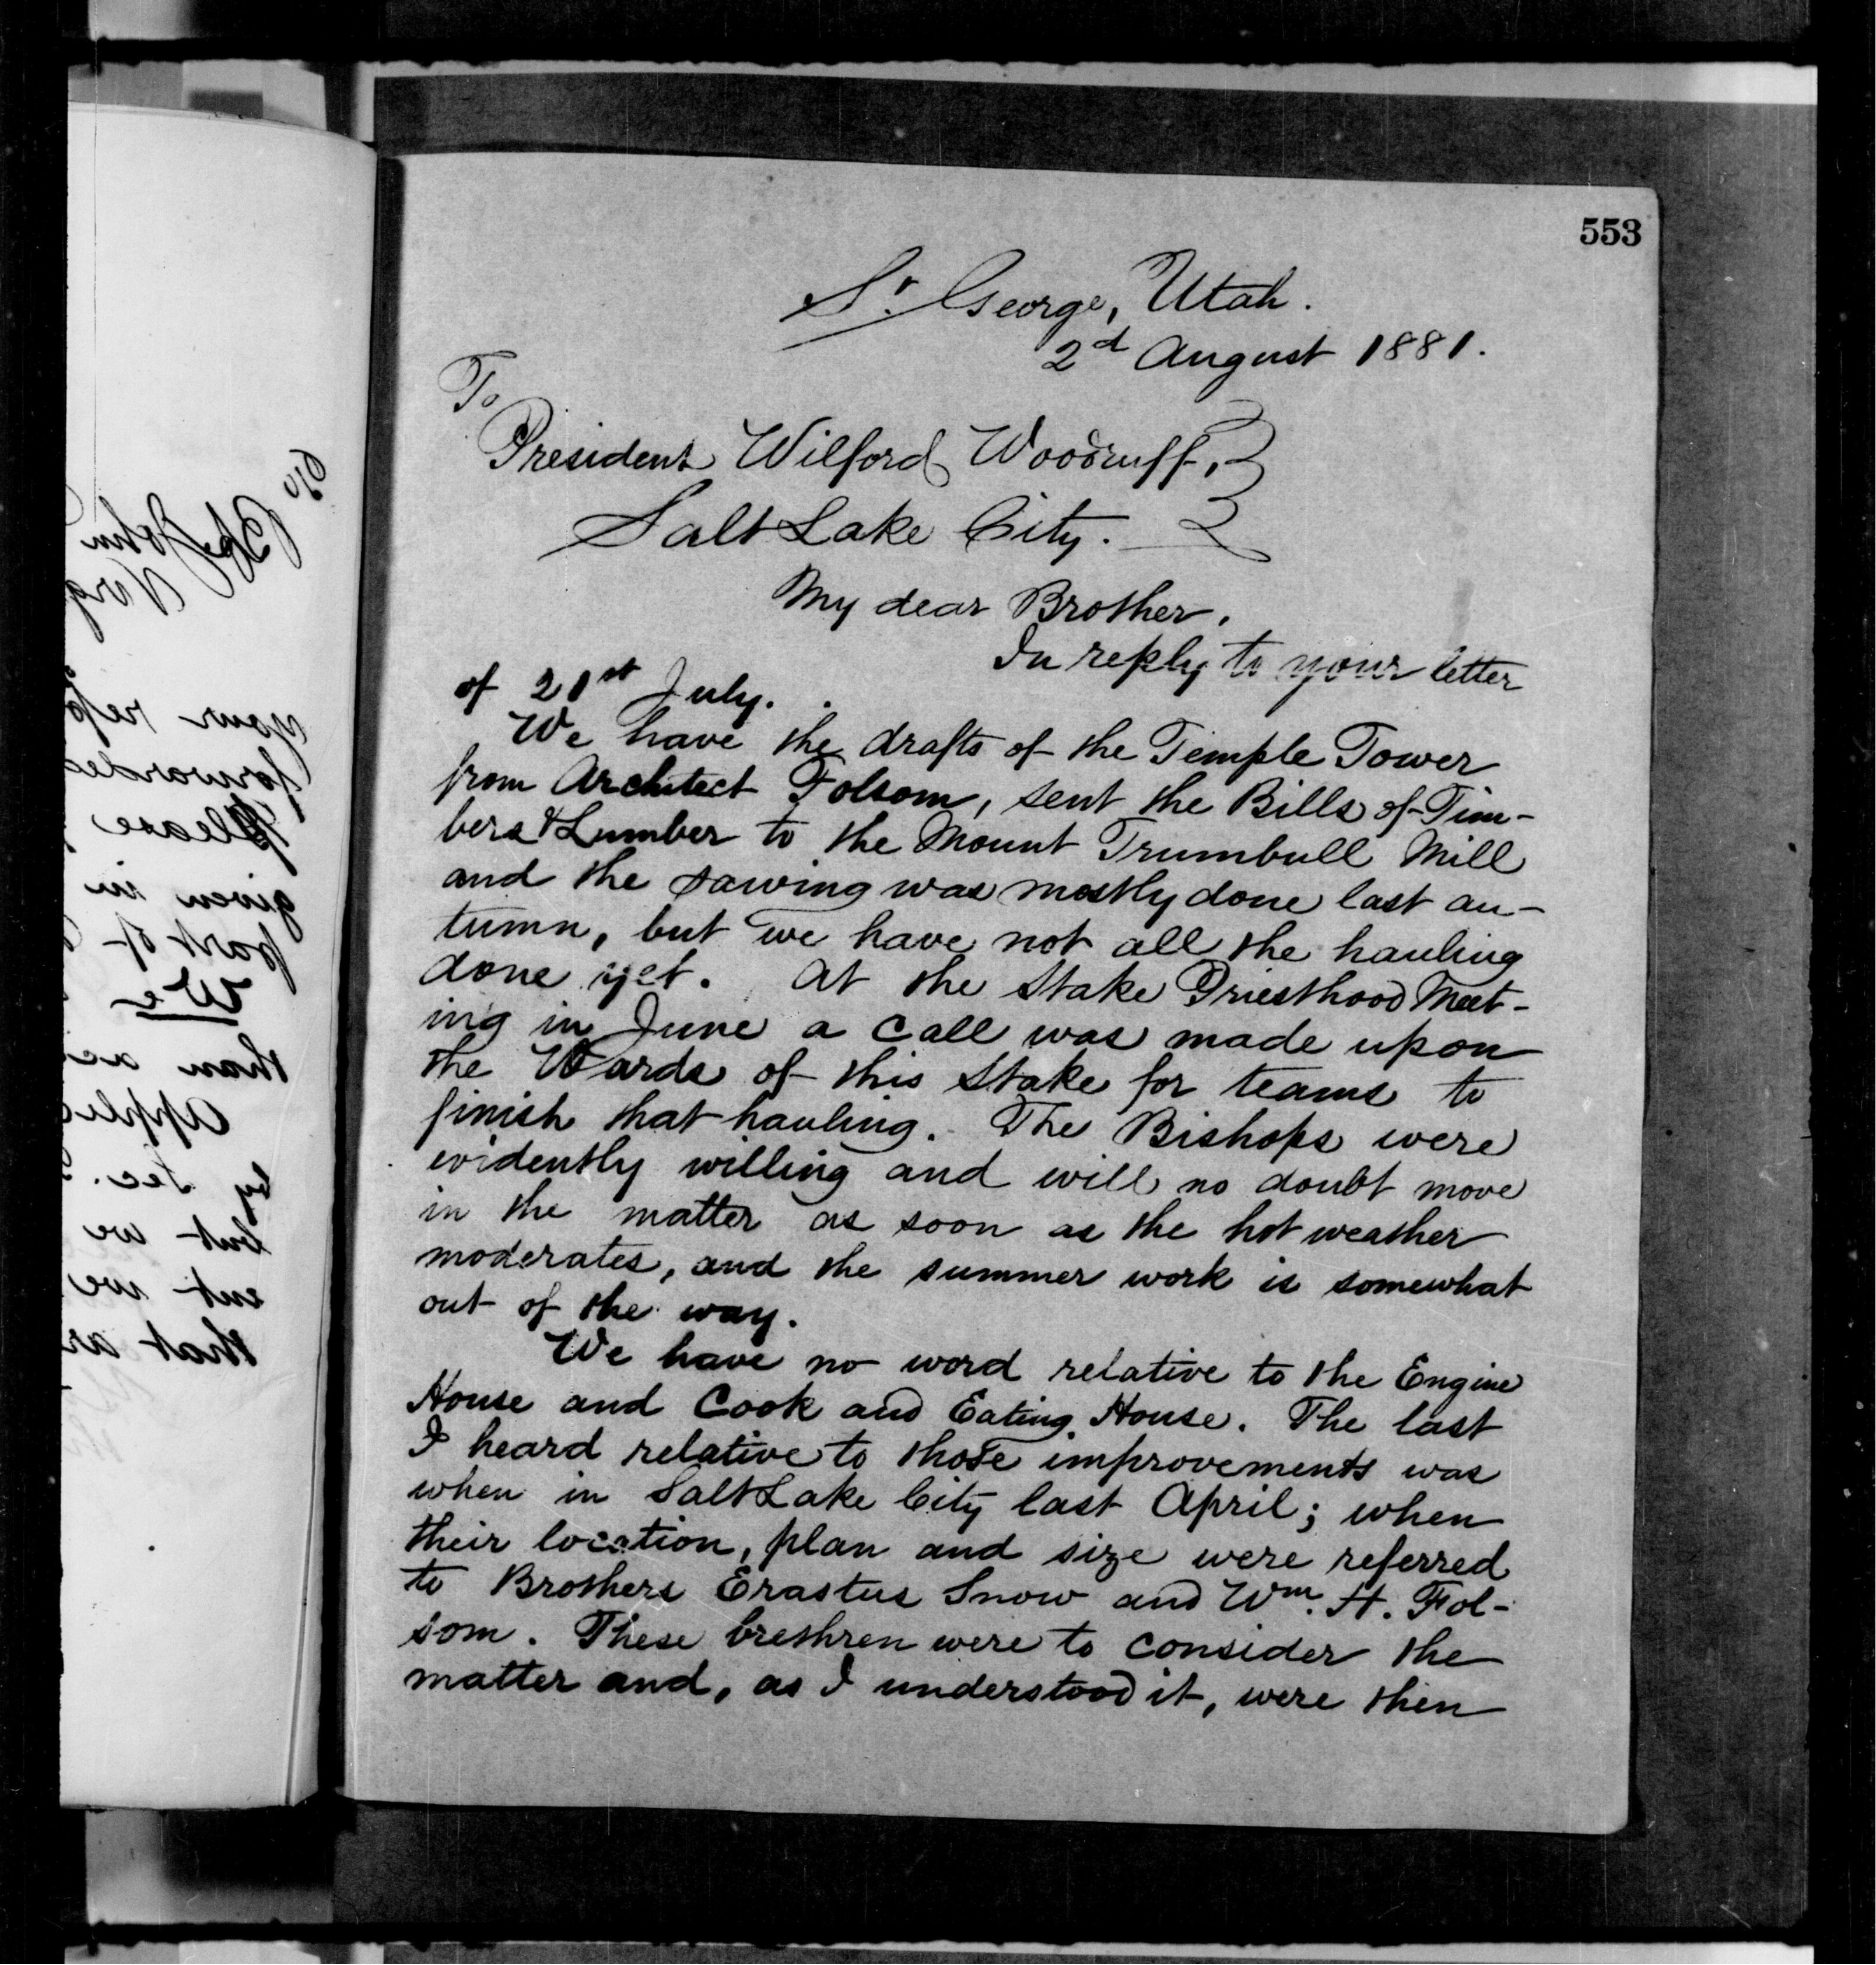 553
St. George, Utah.
2d August 1881.
To
President Wilford Woodruff,
Salt Lake City.
My dear Brother,
In reply to your letter
of 21st July.
We have the drafts of the Temple Tower
from Architect Folsom, sent the Bills of Tim-
bers & Lumber to the Mount Trumbull Mill
and the sawing was mostly done last au-
tumn, but we have not all the hauling
done yet. At the Stake Priesthood Meet-
ing in June a call was made upon
the Wards of this Stake for teams to
finish that hauling. The Bishops were
evidently willing and will no doubt move
in the matter as soon as the hot weather
moderates, and the summer work is somewhat
out of the way.
We have no word relative to the Engine
House and Cook and Eating House. The last
I heard relative to those improvements was
when in Salt Lake City last April; when
their location, plan and size were referred
to Brothers Erastus Snow and Wm. H. Fol-
som. These brethren were to consider the
matter and, as I understood it, were then